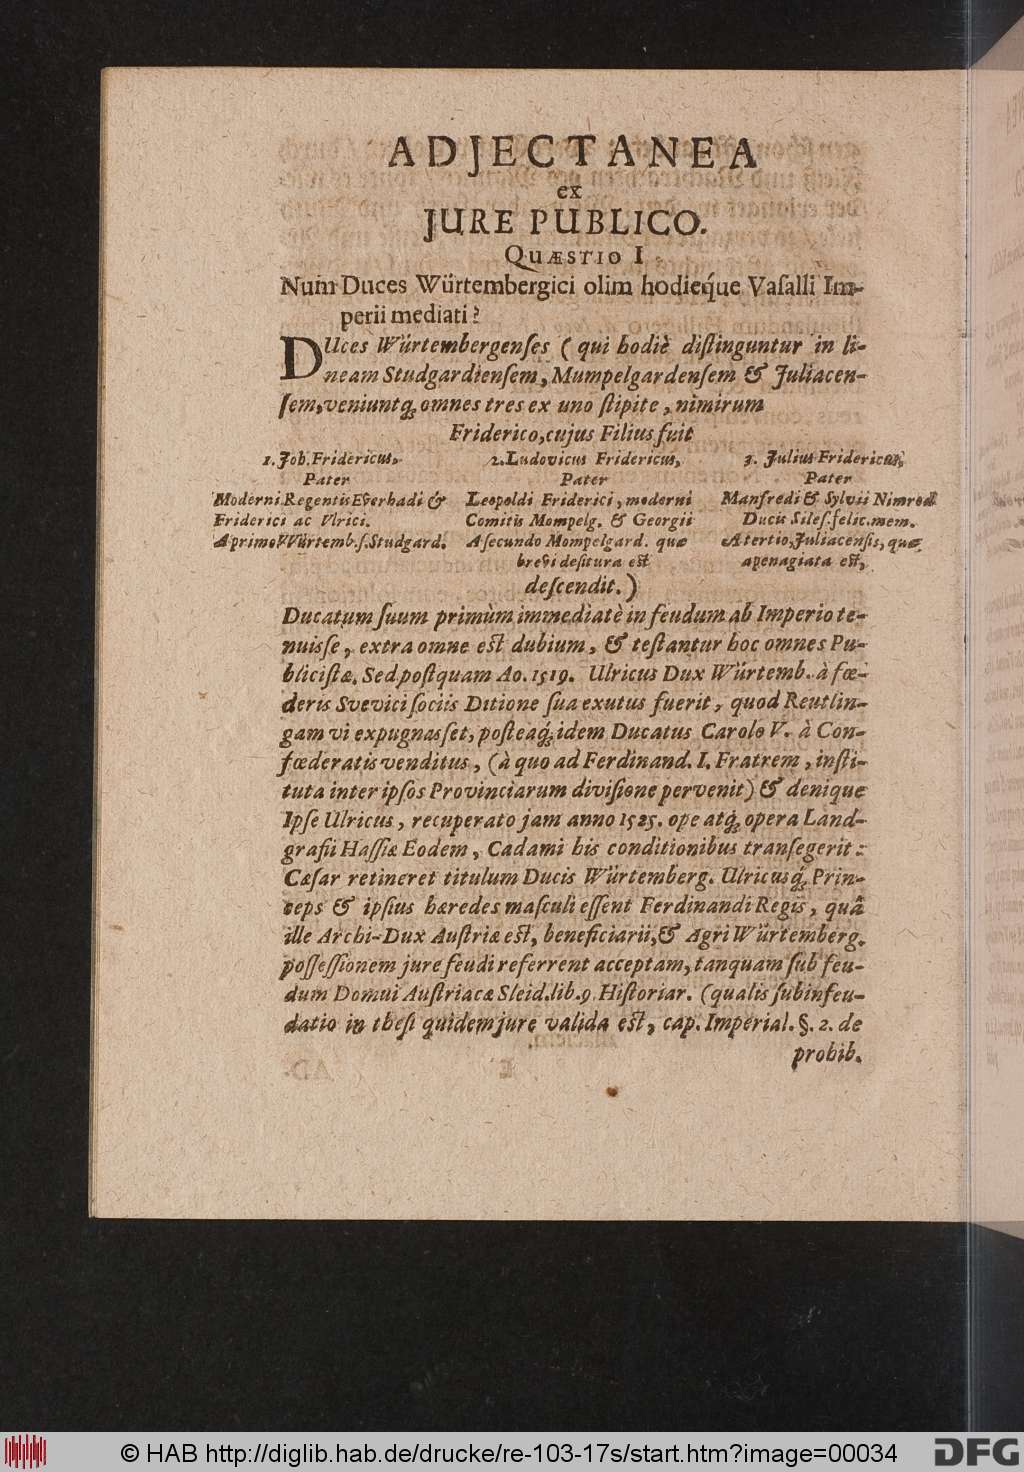 ADJECTANEA
ex
JURE PUBLICO.
QUÆSTIO I.
Num Duces Würtembergici olim hodieq́ue Vaſalli Im-
perii mediati?
DUces Würtembergenſes ( qui hodiè diſtinguntur in li-
neam Studgardienſem, Mumpelgardenſem & Juliacen-
ſem, veniuntq́; omnes tres ex uno ſtipite, nimirum
Friderico, cujus Filius fuit
1. Joh. Fridericus, 2. Ludovicus Fridericus, 3. Julius Fridericus,
Pater Pater Pater
Moderni Regentis Everhadi & Leopoldi Friderici, moderni Manfredi & Sylvii Nimrod
Friderici ac Ulrici. Comitis Mompelg. & Georgii Ducis Sileſ. felic. mem.
A primo VVürtemb. ſ. Studgard. A ſecundo Mompelgard. quæ A tertio, Juliacenſis, quæ
brevi deſitura est apenagiata est,
deſcendit.)
Ducatum ſuum primùm immediatè in feudum ab Imperio te-
nuiſſe, extra omne est dubium, & teſtantur hoc omnes Pu-
bliciſtæ. Sed poſtquam Ao. 1519. Ulricus Dux Würtemb. à fœ-
deris Svevici ſociis Ditione ſua exutus fuerit, quod Reutlin-
gam vi expugnasſet, poſteaq́; idem Ducatus Carolo V. à Con-
fœderatis venditus, (à quo ad Ferdinand. I. Fratrem, inſti-
tuta inter ipſos Provinciarum diviſione pervenit) & denique
Ipſe Ulricus, recuperato jam anno 1525. ope atq́; opera Land-
grafii Haſſiæ Eodem, Cadami his conditionibus tranſegerit:
Cæſar retineret titulum Ducis Würtemberg. Ulricusq́; Prin-
ceps & ipſius hæredes maſculi eſſent Ferdinandi Regis, quâ
ille Archi-Dux Auſtriæ est, beneficiarii, & Agri Würtemberg.
poſſeſſionem jure feudi referrent acceptam, tanquam ſub feu-
dum Domui Auſtriacæ Sleid. lib. 9. Hiſtoriar. (qualis ſubinfeu-
datio in theſi quidem jure valida est, cap. Imperial. §. 2. de
prohib.
© HAB http://diglib.hab.de/drucke/re-103-17s/start.htm?image=00034
DFG